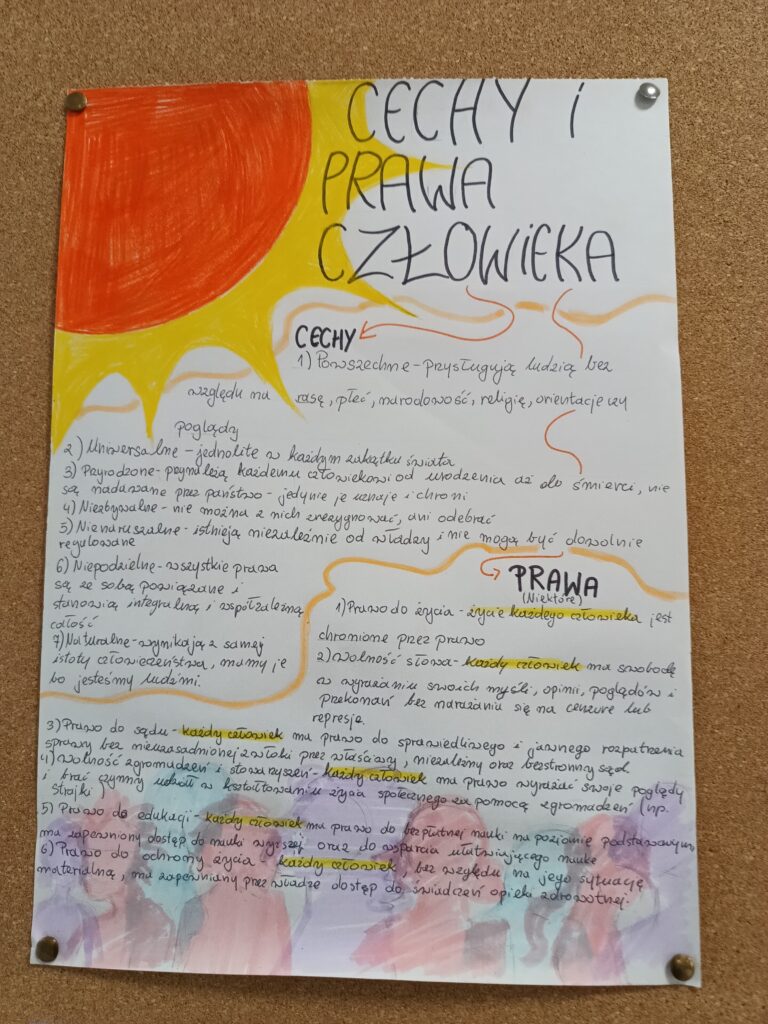 CECHY I
PRAWA
CZŁOWIEKA
CECHY
1) Powszechne - przysługują ludzią bez
względu na rasę, płeć, narodowość, religię, orientacje czy
poglądy
2) Uniwersalne - jednolite w każdym zakątku świata
3) Przyrodzone - przynależą każdemu człowiekowi od urodzenia aż do śmierci, nie
są nadawane przez państwo - jedynie je uznaje i chroni
4) Niezbywalne - nie można z nich zrezygnować, ani odebrać
5) Nienaruszalne - istnieją niezależnie od władzy i nie mogą być dowolnie
regulowane
6) Niepodzielne - wszystkie prawa
są ze sobą powiązane i
stanowią integralną i współzależną
całość
7) Naturalne - wynikają z samej
istoty człowieczeństwa, mamy je
bo jesteśmy ludźmi.
PRAWA
(Niektóre)
1) Prawo do życia - życie każdego człowieka jest
chronione przez prawo
2) wolność słowa - każdy człowiek ma swobodę
w wyrażaniu swoich myśli, opinii, poglądów i
przekonań bez narażania się na cenzurę lub
represje.
3) Prawo do sądu - każdy człowiek ma prawo do sprawiedliwego i jawnego rozpatrzenia
sprawy bez nieuzasadnionej zwłoki przez właściwy, niezależny oraz bezstronny sąd.
4) wolność zgromadzeń i stowarzyszeń - każdy człowiek ma prawo wyrażać swoje poglądy
i brać czynny udział w kształtowaniu życia społecznego za pomocą zgromadzeń (np.
strajki)
5) Prawo do edukacji - każdy człowiek ma prawo do bezpłatnej nauki na poziomie podstawowym,
ma zapewniony dostęp do nauki wyższej oraz do wsparcia ułatwiającego naukę
6) Prawo do ochrony życia - każdy człowiek, bez względu na jego sytuację
materialną, ma zapewniany przez władze dostęp do świadczeń opieki zdrowotnej.